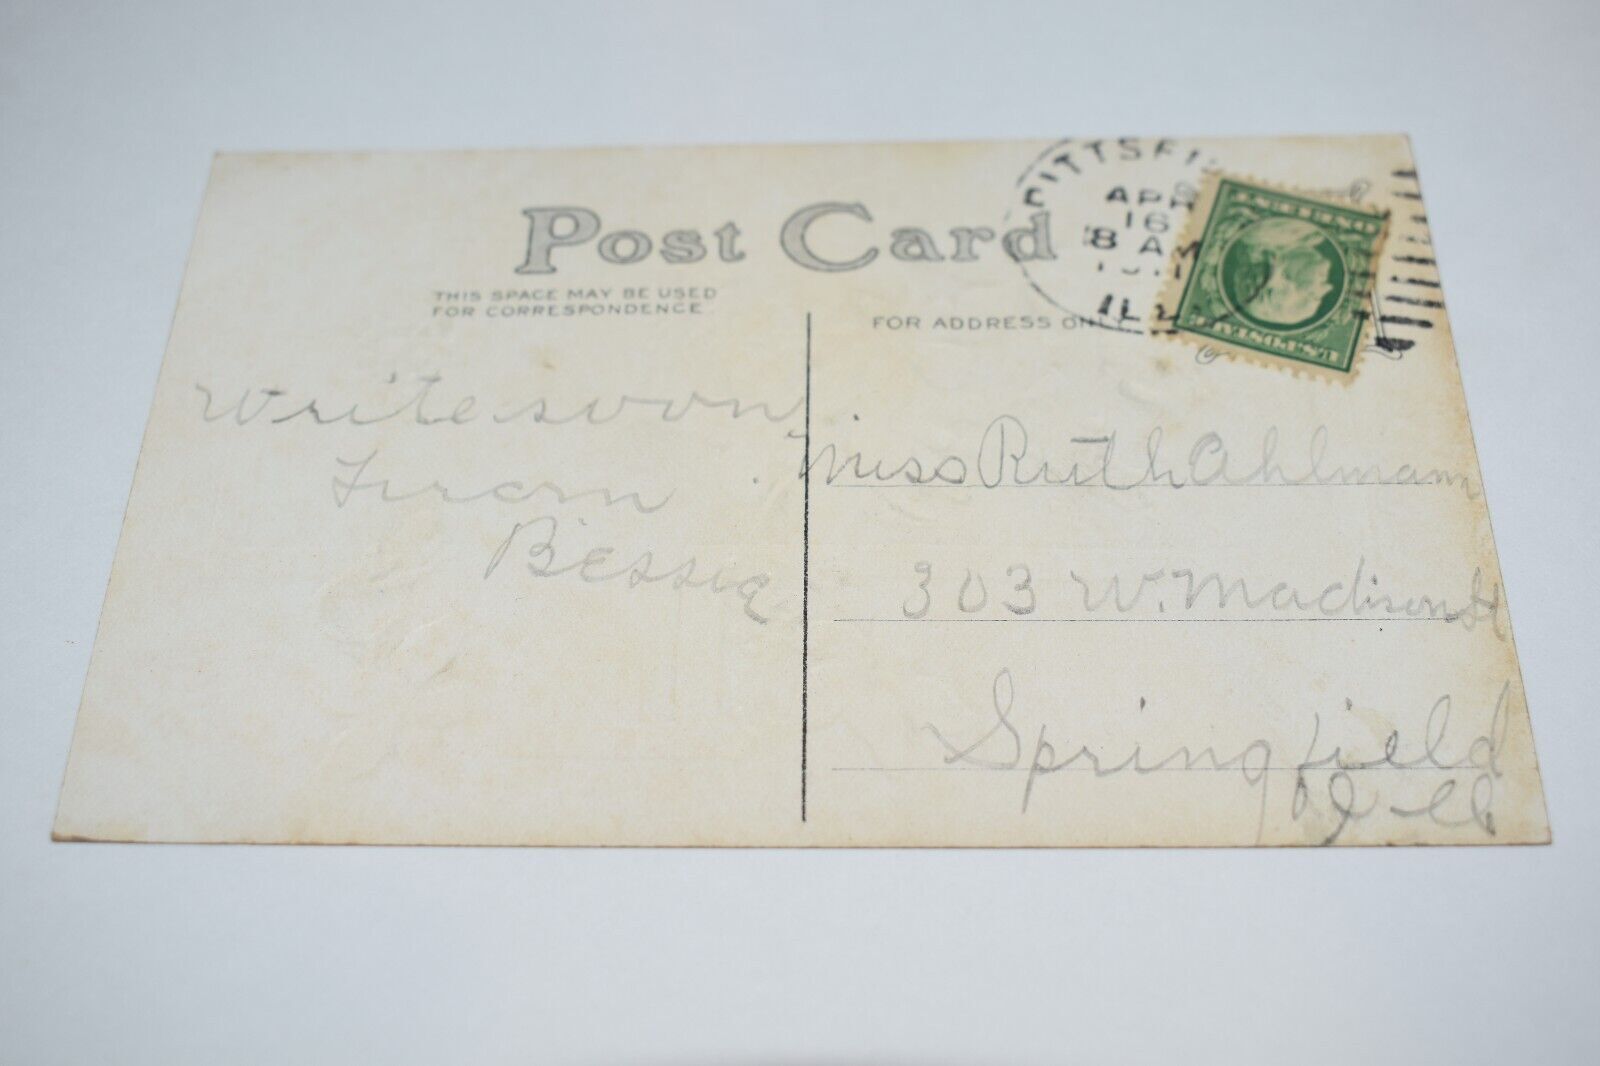 Post Card
THIS SPACE MAY BE USED
FOR CORRESPONDENCE.
FOR ADDRESS ONLY
PITTSFI
APR
16
8 AM
ILL
Write soon
From
Bessie
Miss Ruth Ahlmann
303 W. Madison St
Springfield
Ill